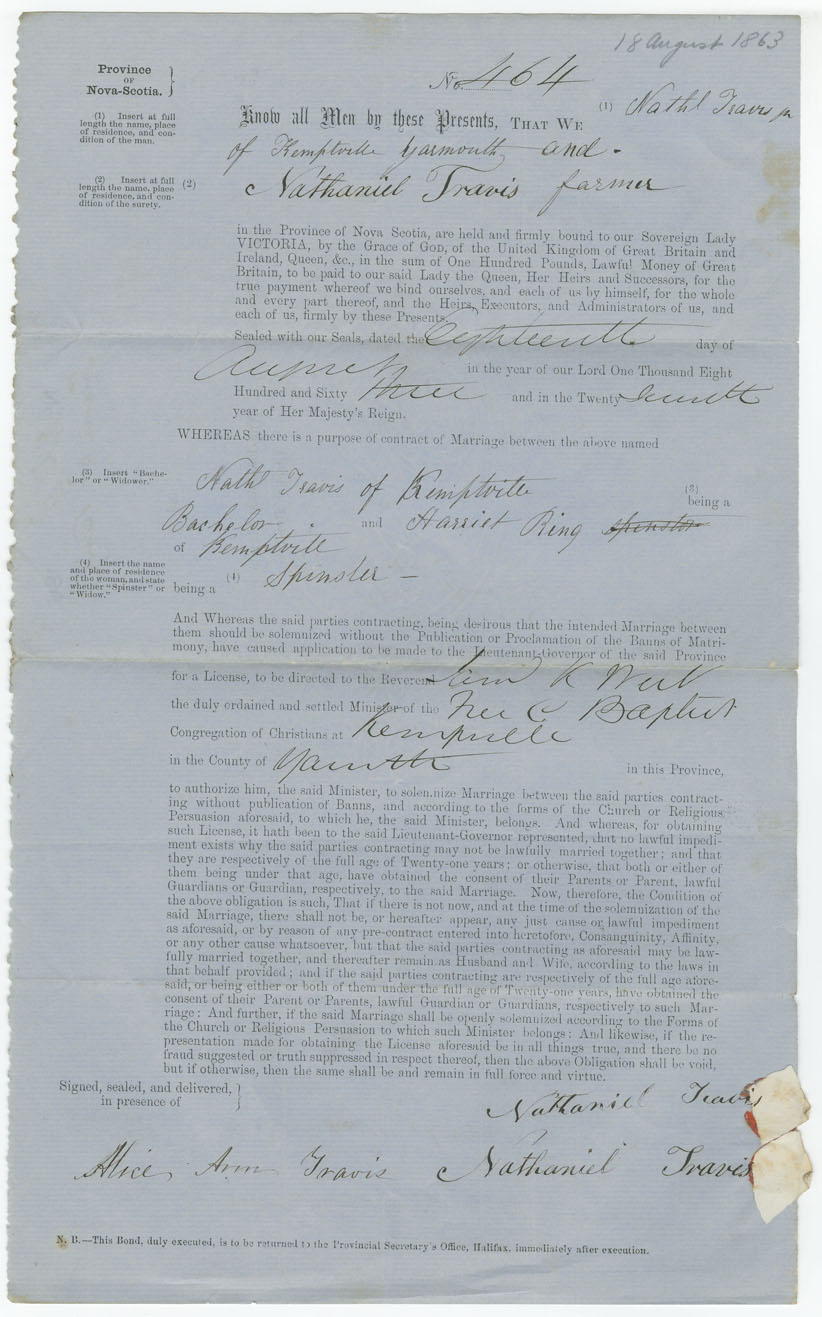 18 August 1863
Province
OF
Nova-Scotia.
No. 464
(1) Insert at full
length the name, place
of residence, and con-
dition of the man.
Know all Men by these Presents, THAT WE (1) Nathl Travis jr
of Kemptville Yarmouth and -
(2) Insert at full
length the name, place
of residence, and con-
dition of the surety.
(2) Nathaniel Travis farmer
in the Province of Nova Scotia, are held and firmly bound to our Sovereign Lady
VICTORIA, by the Grace of GOD, of the United Kingdom of Great Britain and
Ireland, Queen, &c., in the sum of One Hundred Pounds, Lawful Money of Great
Britain, to be paid to our said Lady the Queen, Her Heirs and Successors, for the
true payment whereof we bind ourselves, and each of us by himself, for the whole
and every part thereof, and the Heirs, Executors, and Administrators of us, and
each of us, firmly by these Presents.
Sealed with our Seals, dated the Eighteenth day of
August in the year of our Lord One Thousand Eight
Hundred and Sixty three and in the Twenty
year of Her Majesty's Reign.
WHEREAS there is a purpose of contract of Marriage between the above named
(3) Insert "Bache-
lor" or "Widower."
Nathl Travis of Kemptville (3) being a
Bachelor and Harriet Ring spinster
of Kemptville
(4) Insert the name
and place of residence
of the woman, and state
whether "Spinster" or
"Widow."
being a (4) Spinster -
And Whereas the said parties contracting, being desirous that the intended Marriage between
them should be solemnized without the Publication or Proclamation of the Banns of Matri-
mony, have caused application to be made to the Lieutenant-Governor of the said Province
for a License, to be directed to the Reverend K West
the duly ordained and settled Minister of the Free C Baptist
Congregation of Christians at Kempville
in the County of Yarmth in this Province,
to authorize him, the said Minister, to solemnize Marriage between the said parties contract-
ing without publication of Banns, and according to the forms of the Church or Religious
Persuasion aforesaid, to which he, the said Minister, belongs. And whereas, for obtaining
such License, it hath been to the said Lieutenant-Governor represented, that no lawful impedi-
ment exists why the said parties contracting may not be lawfully married together; and that
they are respectively of the full age of Twenty-one years; or otherwise, that both or either of
them being under that age, have obtained the consent of their Parents or Parent, lawful
Guardians or Guardian, respectively, to the said Marriage. Now, therefore, the Condition of
the above obligation is such, That if there is not now, and at the time of the solemnization of the
said Marriage, there shall not be, or hereafter appear, any just cause or lawful impediment
as aforesaid, or by reason of any pre-contract entered into heretofore, Consanguinity, Affinity,
or any other cause whatsoever, but that the said parties contracting as aforesaid may be law-
fully married together, and thereafter remain as Husband and Wife, according to the laws in
that behalf provided; and if the said parties contracting are respectively of the full age afore-
said, or being either or both of them under the full age of Twenty-one years, have obtained the
consent of their Parent or Parents, lawful Guardian or Guardians, respectively to such Mar-
riage: And further, if the said Marriage shall be openly solemnized according to the Forms of
the Church or Religious Persuasion to which such Minister belongs: And likewise, if the re-
presentation made for obtaining the License aforesaid be in all things true, and there be no
fraud suggested or truth suppressed in respect thereof, then the above Obligation shall be void,
but if otherwise, then the same shall be and remain in full force and virtue.
Signed, sealed, and delivered,
in presence of
Nathaniel Travis
Alice Ann Travis Nathaniel Travis
N. B.—This Bond, duly executed, is to be returned to the Provincial Secretary's Office, Halifax, immediately after execution.